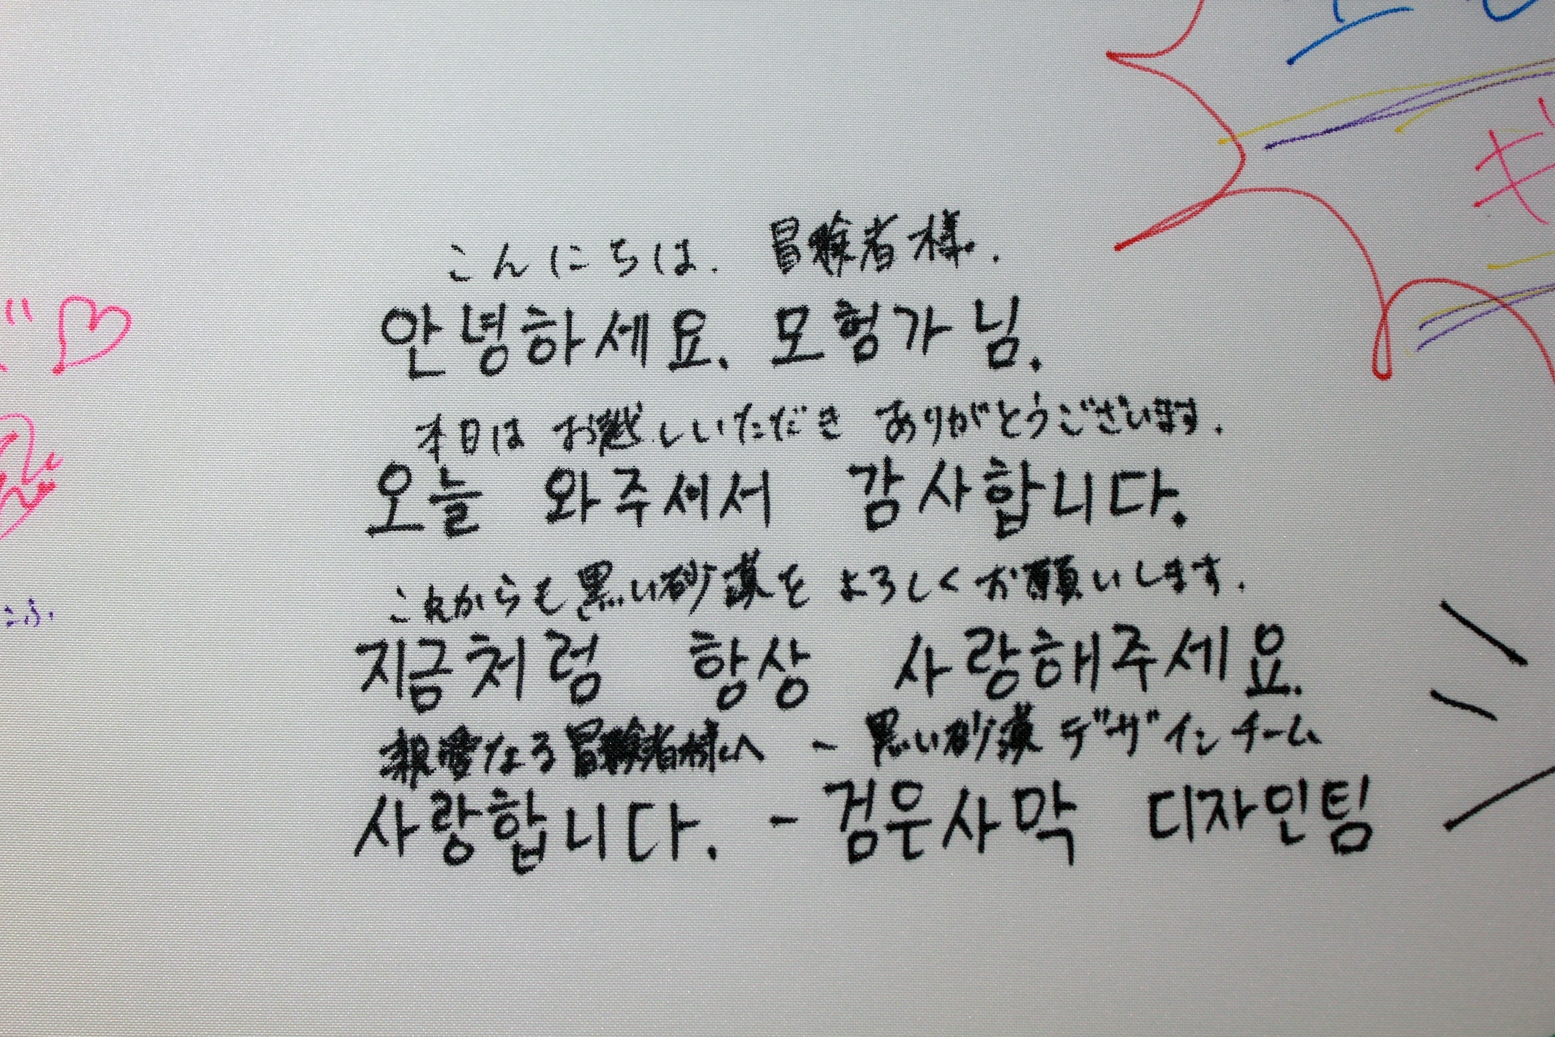 こんにちは. 冒険者様.
안녕하세요. 모험가님.
本日は お越しいただき ありがとうございます.
오늘 와주셔서 감사합니다.
これからも黒い砂漠を よろしくお願いします.
지금처럼 항상 사랑해주세요.
親愛なる冒険者様へ - 黒い砂漠 デザインチーム
사랑합니다. - 검은사막 디자인팀